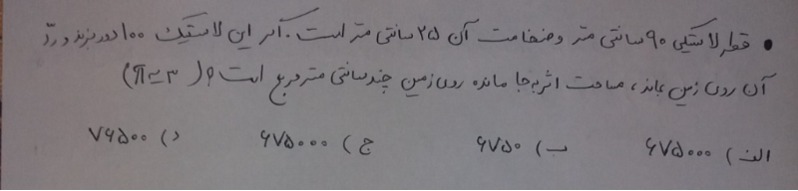 • قطر لاستیکی ۹۰ سانتی متر و ضخامت آن ۲۵ سانتی متر است. اگر این لاستیک ۱۰۰ دور بزند و ردّ
آن روی زمین بماند، مساحت اثر به جا مانده روی زمین چند سانتی متر مربع است؟ (π≃۳)
الف) ۶۷۵۰۰۰ ب) ۶۷۵۰ ج) ۶۷۵۰۰۰ د) ۷۶۵۰۰